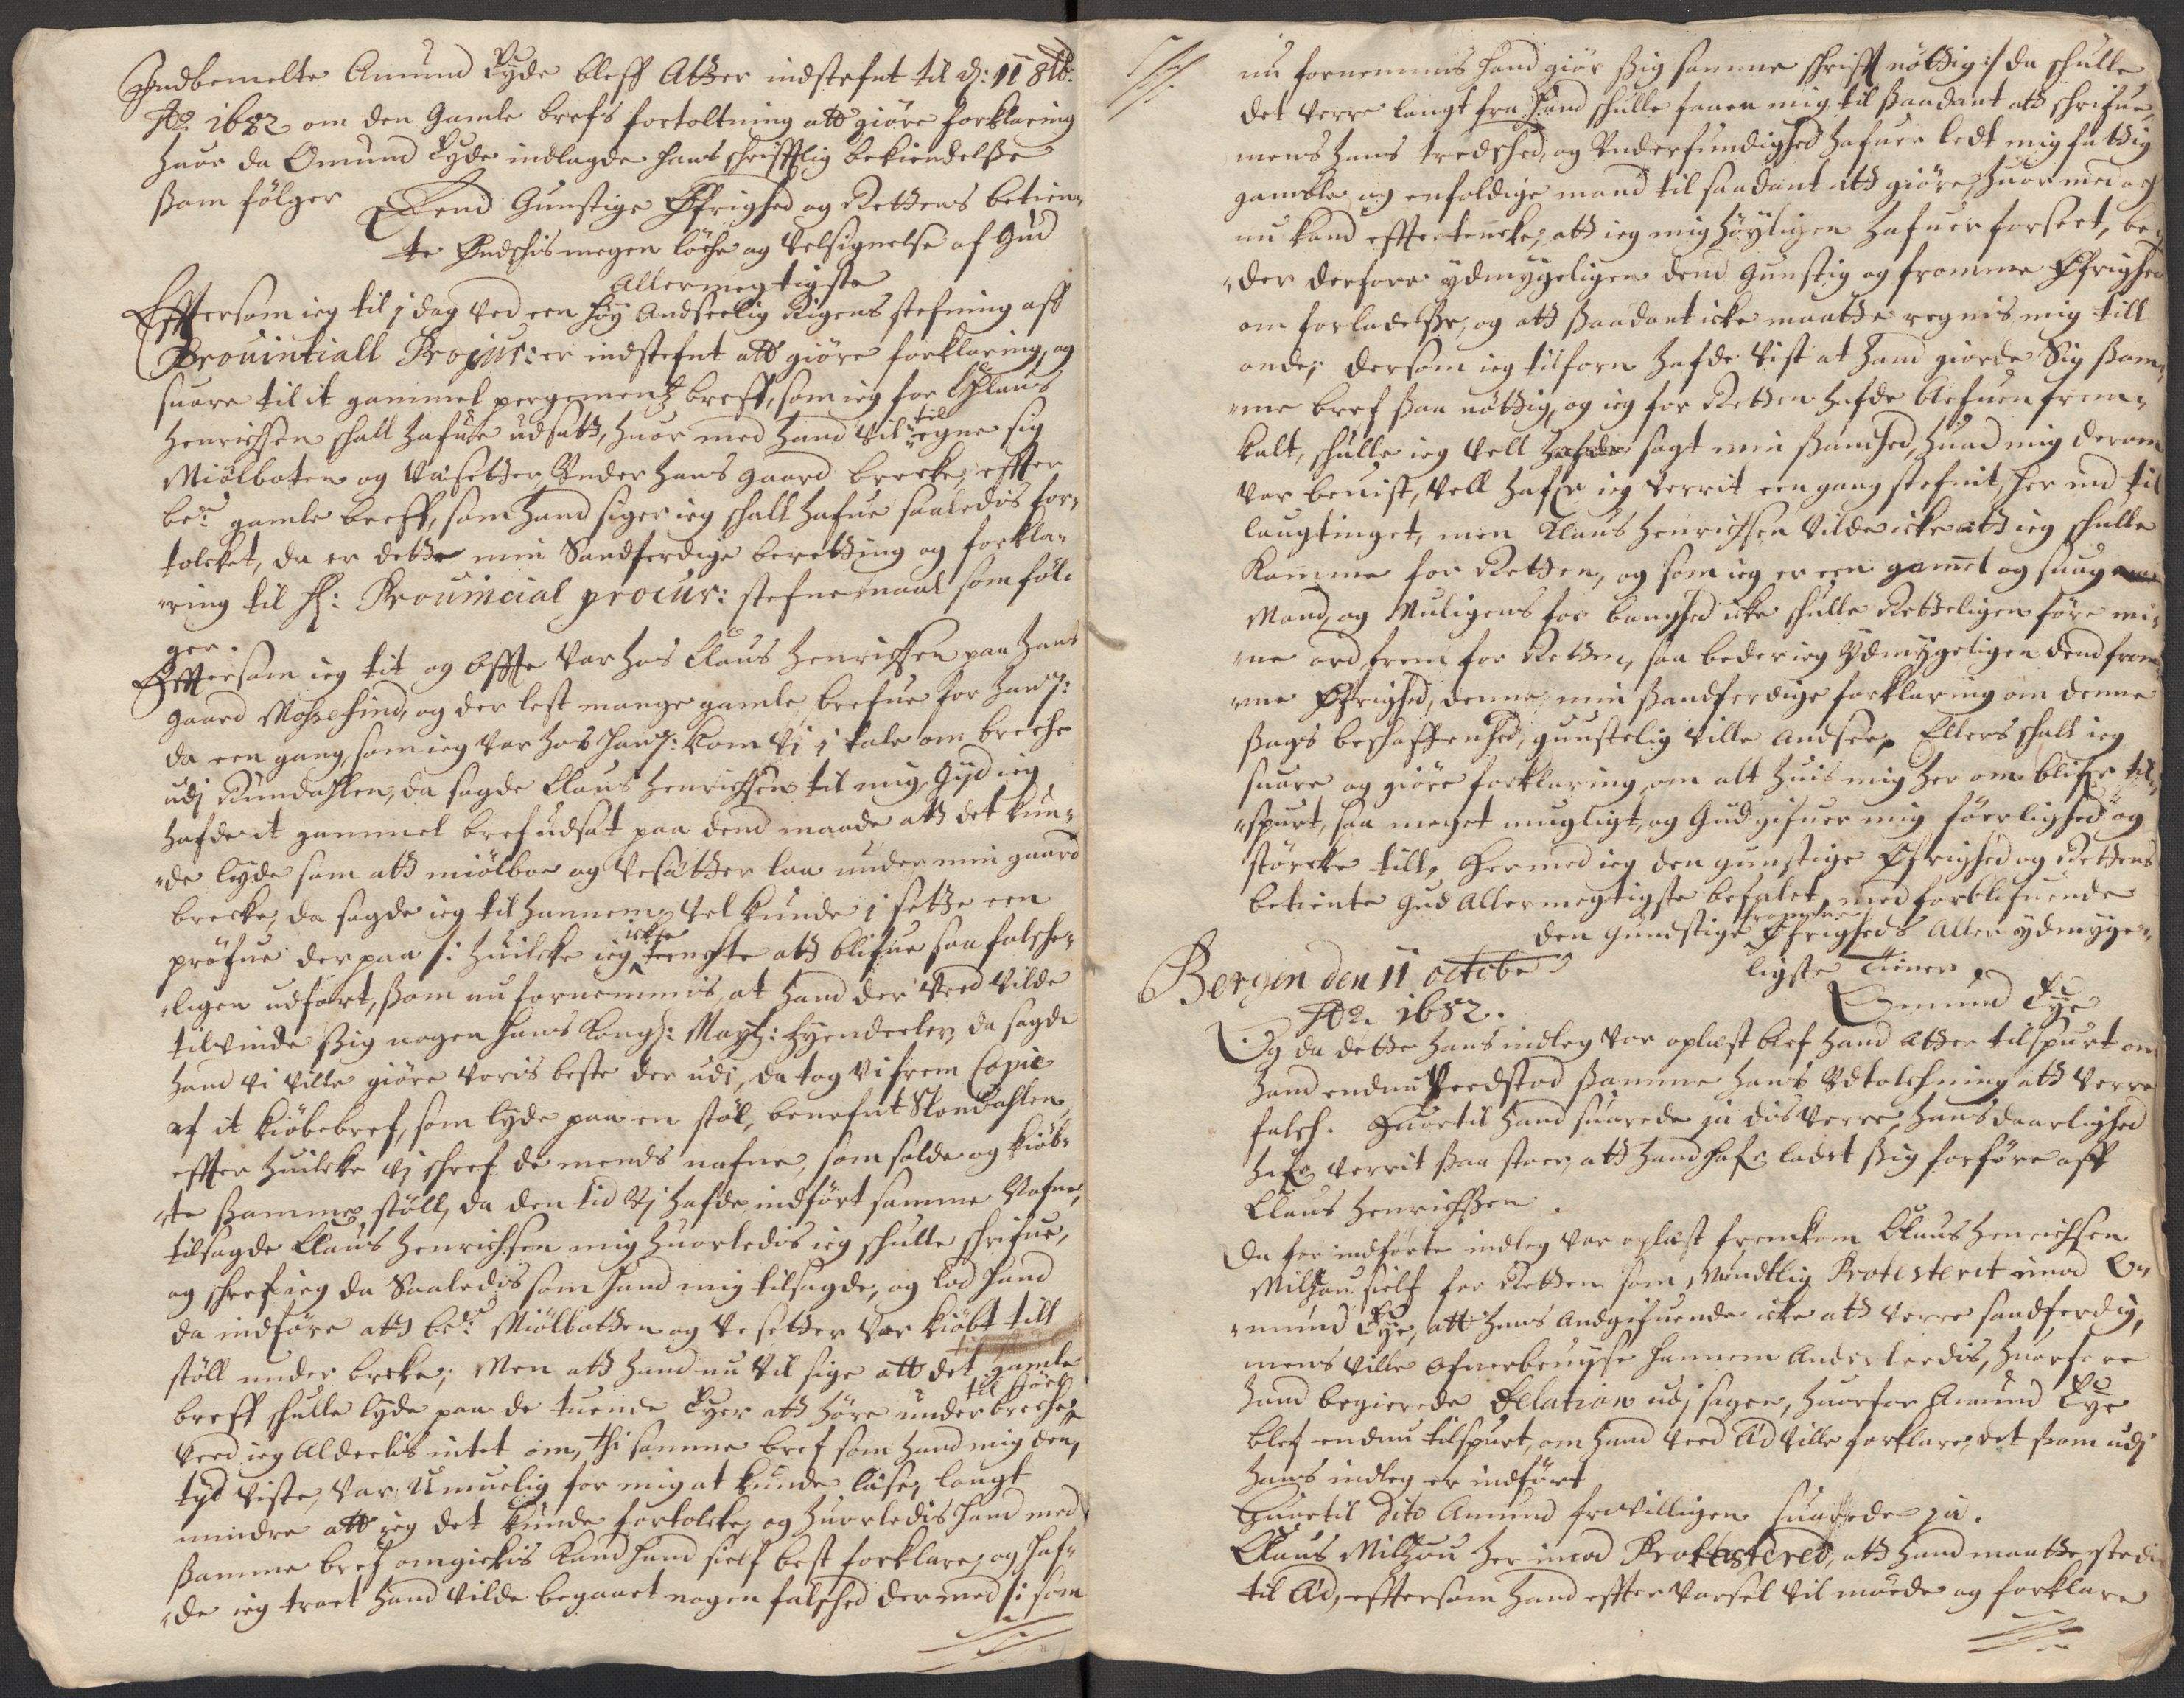 Indbemelte Amund Tyde bleff Atter indstefnt til d: 11 8tb:
Ao. 1682 om den Gamle brefs fortoltning att giöre forklaring
huor da Omund Tyde indlagde hans schrifftlig bekiendelße
ßom fölger Dend Gunstige Öfrighed og Rettens betien,
te Øndschis megen löche og Velsignelse af Gud
Allermegtigste
Efftersom ieg til i dag ved een höy Andseelig Rigens stefning aff
Prouintiall Procur: er indstefnt att giöre forklaring, og
suare til it gammel pergementz breff, som ieg for Claus
Henrichsen schall hafue udsatt, huor med hand vil til egne sig
Miölboten og Vasetter Under hans gaard brecke, effter
ber: gamle breff, som hand siger ieg schall hafue saaledis for,
tolcket, da er dette min Sandferdige beretting og forkla,
ring til H: Prouincial procur: stefnemaal som föl,
ger.
Efftersom ieg tit og offte var hos Claus Henrichsen paa hans
gaard Mohrefind, og der lest mange gamle brefue for ham:
da een gang, som ieg var hos ham: kom Vi i tale om breche
udj Rundahlen, da sagde Claus Henrichsen til mig, Gud ieg
hafde it gammel bref udsat paa dend maade att det kun,
de lyde som att miölboe og Vesätter laa under min gaard
brecke, da sagde ieg til hannem, vel kunde i sette een
pröfue derpaa /: huilcke ieg icke tenchte att blifue saa falsche,
ligen udfört, ßom nu fornemmis, at hand der Ved vilde
tilvinde ßig nogen hans Kongl: Mayt: Eyendeeler, da sagde
hand vi ville giöre voris beste der udi, da tog vi frem Copie
af it kiöbebref, som lyde paa en stöl, benefnt Skondahlen,
effter huilcke vj schref de mends nafne, som solde og kiöb,
te ßamme stöll, da den tid Vj hafde indfört samme Nafne,
tilsagde Claus Henrichsen mig huorledis ieg schulle schrifue,
og schref ieg da Saaledis som hand mig tilsagde, og lod hand
da indföre att ber: Miölbotten og Vesetter var kiöbt till
ställ under breke; Men att hand nu vil sige att det gamle
breff schulle lyde paa de tuende Eyer att höre under breche til stöel
Veed ieg Aldeelis intet om, thi samme bref som hand mig den,
tyd viste, var Umuelig for mig at kunde läse, langt
mindre att ieg det kunde fortolcke, og huorledis hand med
ßamme bref omgickis kand hand sielf best forklare, og haf,
de ieg troet hand vilde begaaet nogen falsched der med /: som
nu fornemmis hand giör ßig samme schrifft nöttig :/ da schulle
det verre langt fra hand schulle faaen mig til ßaadant att schrifue,
mens hans tredsched, og Underfundighed hafuer ledt mig fattig
gamble og enfoldige mand til saadant att giöre, huor med ieg
nu kand effter tencke, att ieg mig höyligen hafuer forseet, be,
der derfore ydmygeligen dend Gunstig og fromme Öfrighed
om forladelße, og att ßaadant icke maatte regnis mig till
onde, dersom ieg tilforn hafde Vist at hand giorde Sig ßam,
me bref ßaa nöttig, og ieg for Retten hafde blefuen frem,
kalt, schulle ieg vell hafde sagt min ßandhed, huad mig derom
var beuist, vell hafr ieg verrit een gang stefnit her ind til
laugtinget, men Claus Henrichsen vilde icke att ieg schulle
komme for Retten, og som ieg er een gamel og suag
Mand, og Muligens for banghed icke schulle Retteligen före mi,
ne ord frem for Retten, saa beder ieg Ydmygeligen dend from,
me Öfrighed, denne min ßandferdige forklaring om denne
ßags beschaffenhed, gunstelig ville andsee, Ellers schall ieg
suare og giöre forklaring om alt huis mig her om blifr til,
spurt, saa meget mugligt, og Gud gifuer mig förlighed og
störcke till, Hermed ieg den gunstige Öfrighed og Rettens
betiente Gud Allermegtigste befalet, med forblifuende
den Gundstige fromme Öfrigheds Aller ydmyge,
ligste Tiener
Bergen den 11 octobr
Ao. 1682.
Omund Tye
Og da dette hans indleg var oplæst blef hand Atter tilspurt om
hand endnu Veedstod ßamme hans Udtolchning att verre
falsch. Huortil hand suarede ja dis verre, hans daarlighed
hafr verrit ßaa stoer, att hand hafr ladet ßig forföre aff
Claus Henrichßen.
Da for indförte indleg var oplæst fremkom Claus Henrichsen
Milzou sielf for Retten som Mundtlig Protesterit imod O,
mund Tye, att hans Andgifuende icke att verre sandferdig,
mens ville ofuerbeuyse hannem Anderleedis, huorfore
hand begierede Dilation udj sagen, huorfor Amund Tye
blef endnu tilspurt, om hand ved Æd ville forklare, det ßom udj
hans indleg er indfört
Huortil dito Amund frivilligen suarede ja.
Claus Milzou her imod Protesteret, att hand maatte stedis
til Æd, efftersom hand effter varsel vil möede og forklare